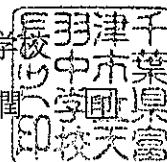 千葉県富
津市立天
羽中学校
長之印
学校